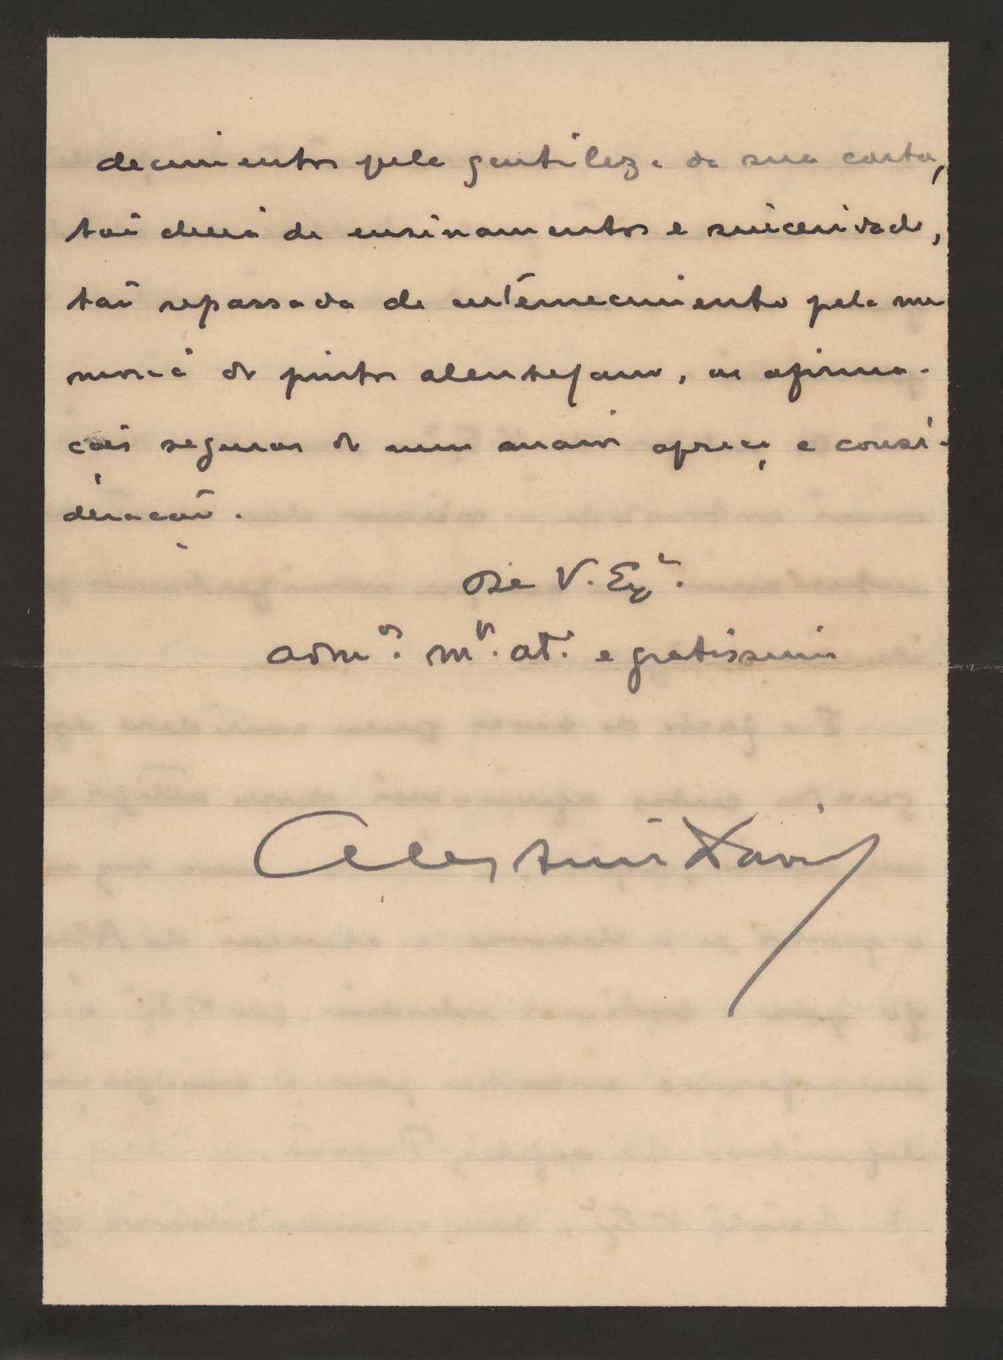 decimentos pela gentileza da sua carta,
tão cheia de ensinamentos e sinceridade,
tão repassada de enternecimento pela me
moria do pintor alentejano, as afirma-
ções seguras do meu maior apreço e consi-
deração.
De V. Exª.
adm.ᵒʳ m.ᵗᵒ at.ᵒ e gratissimo
Celestino David